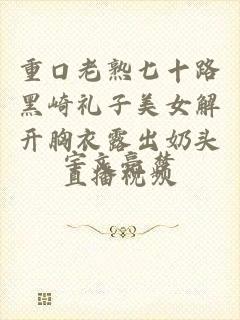 重口老熟七十路
黑崎礼子美女解
开胸衣露出奶头
直播视频